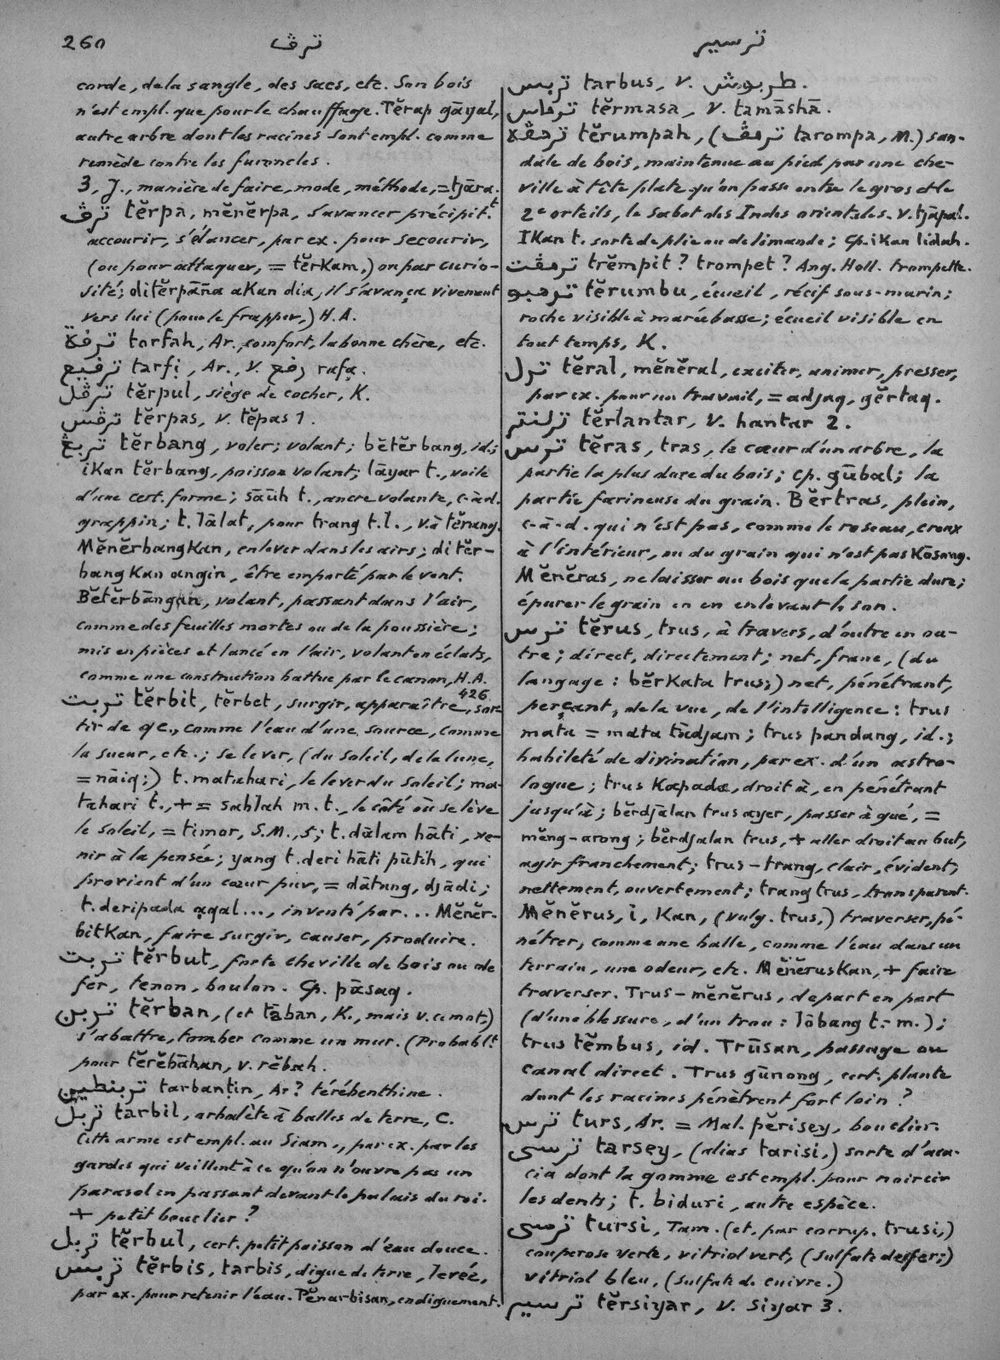 260 ترڤ ترسير
corde, de la sangle, des sacs, etc. Son bois
n'est empl. que pour le chauffage. Tĕrap gāyal,
autre arbre dont les racines sont empl. comme
remède contre les furoncles.
3, J., manière de faire, mode, méthode, = tjāra.
ترڤ tĕrpa, mĕnĕrpa, s'avancer précipit.t
accourir, s'élancer, par ex. pour secourir,
(ou pour attaquer, = tĕrkam,) ou par curio-
sité; ditĕrpāña akan dia, il s'avança vivement
vers lui (pour le frapper,) H.A.
ترفة tarfah, Ar., confort, la bonne chère, etc.
ترفيع tarfi, Ar., v. رفع rafa.
ترڤل tĕrpul, siège de cocher, K.
ترڤس tĕrpas, v. tĕpas 1.
تربڠ tĕrbang, voler; volant; bĕtĕrbang, id.;
ikan tĕrbang, poisson volant; lāyar t., voile
d'une cert. forme; sāuh t., ancre volante, c-à-d.
grappin; t. lālat, pour trang t.l., v. à tĕrang.
Mĕnĕrbangkan, enlever dans les airs; di tĕr-
bangkan angin, être emporté par le vent.
Bĕtĕrbāngan, volant, passant dans l'air,
comme des feuilles mortes ou de la poussière;
mis en pièces et lancé en l'air, volant en éclats,
comme une construction battue par le canon, H.A.
426.
تربت tĕrbit, tĕrbet, surgir, apparaître, sor-
tir de qc., comme l'eau d'une source, comme
la sueur, etc.; se lever, (du soleil, de la lune,
= nāiq;) t. matahari, le lever du soleil; ma-
tahari t., + = sablah m. t., le côté où se lève
le soleil, = timor, S.M., 5; t. dālam hāti, ve-
nir à la pensée; yang t. deri hāti pūtih, qui
provient d'un cœur pur, = dātang, djādi;
t. deripada aqal..., inventé par... Mĕnĕr-
bitkan, faire surgir, causer, produire.
تربت tĕrbut, forte cheville de bois ou de
fer, tenon, boulon. Cp. pāsaq.
تربن tĕrban, (et tāban, K., mais v. ce mot.)
s'abattre, tomber comme un mur. (Probabl.t
pour tĕrĕbāhan, v. rĕbah.
تربنطين tarbantin, Ar? térébenthine.
تربل tarbil, arbalète à balles de terre, C.
Cette arme est empl. au Siam, par ex. par les
gardes qui veillent à ce qu'on n'ouvre pas un
parasol en passant devant le palais du roi.
+ petit bouclier?
تربل tĕrbul, cert. petit poisson d'eau douce.
تربس tĕrbis, tarbis, digue de terre, levée,
par ex. pour retenir l'eau. Pĕnarbisan, endiguement.
تربس tarbus, v. طربوش.
ترماس tĕrmasa, v. tamāshā.
ترمڤه tĕrumpah, (ترمڤ tarompa, M.) san-
dale de bois, maintenue au pied par une che-
ville à tête plate qu'on passe entre le gros et le
2e orteils, le sabot des Indes orientales. v. tjāpal.
Ikan t. sorte de plie ou de limande; cp. ikan lidah.
ترمڤت trĕmpit? trompet? Ang. Holl. trompette.
ترمبو tĕrumbu, écueil, récif sous-marin;
roche visible à marée basse; écueil visible en
tout temps, K.
ترل tĕral, mĕnĕral, exciter, animer, presser,
par ex. pour un travail, = adjaq, gĕrtaq.
ترلنتر tĕrlantar, v. hantar 2.
ترس tĕras, tras, le cœur d'un arbre, la
partie la plus dure du bois; cp. gūbal; la
partie farineuse du grain. Bĕrtras, plein,
c-à-d. qui n'est pas, comme le roseau, creux
à l'intérieur, ou du grain qui n'est pas kōsong.
Mĕnĕras, ne laisser au bois que la partie dure;
épurer le grain en en enlevant le son.
ترس tĕrus, trus, à travers, d'outre en ou-
tre; direct, directement; net, franc, (du
langage: bĕrkata trus;) net, pénétrant,
perçant, de la vue, de l'intelligence: trus
mata = mata tādjam; trus pandang, id.;
habileté de divination, par ex. d'un astro-
logue; trus kapada, droit à, en pénétrant
jusqu'à; bĕrdjālan trus ayer, passer à gué, =
mĕng-arong; bĕrdjalan trus, + aller droit au but,
agir franchement; trus-trang, clair, évident,
nettement, ouvertement; trang trus, transparent.
Mĕnĕrus, i, kan, (vulg. trus,) traverser, pé-
nétrer, comme une balle, comme l'eau dans un
terrain, une odeur, etc. Mĕnĕruskan, + faire
traverser. Trus-mĕnĕrus, de part en part
(d'une blessure, d'un trou: lābang t.-m.);
trus tĕmbus, id. Trūsan, passage ou
canal direct. Trus gūnong, cert. plante
dont les racines pénètrent fort loin?
ترس turs, Ar. = Mal. pĕrisey, bouclier.
ترسى tarsey, (alias tarisi,) sorte d'aca-
cia dont la gomme est empl. pour noircir
les dents; t. biduri, autre espèce.
ترسى tursi, Tam. (et, par corrup. trusi,)
couperose verte, vitriol vert, (sulfate de fer;)
vitriol bleu, (sulfate de cuivre.)
ترسير tĕrsiyar, v. siyar 3.